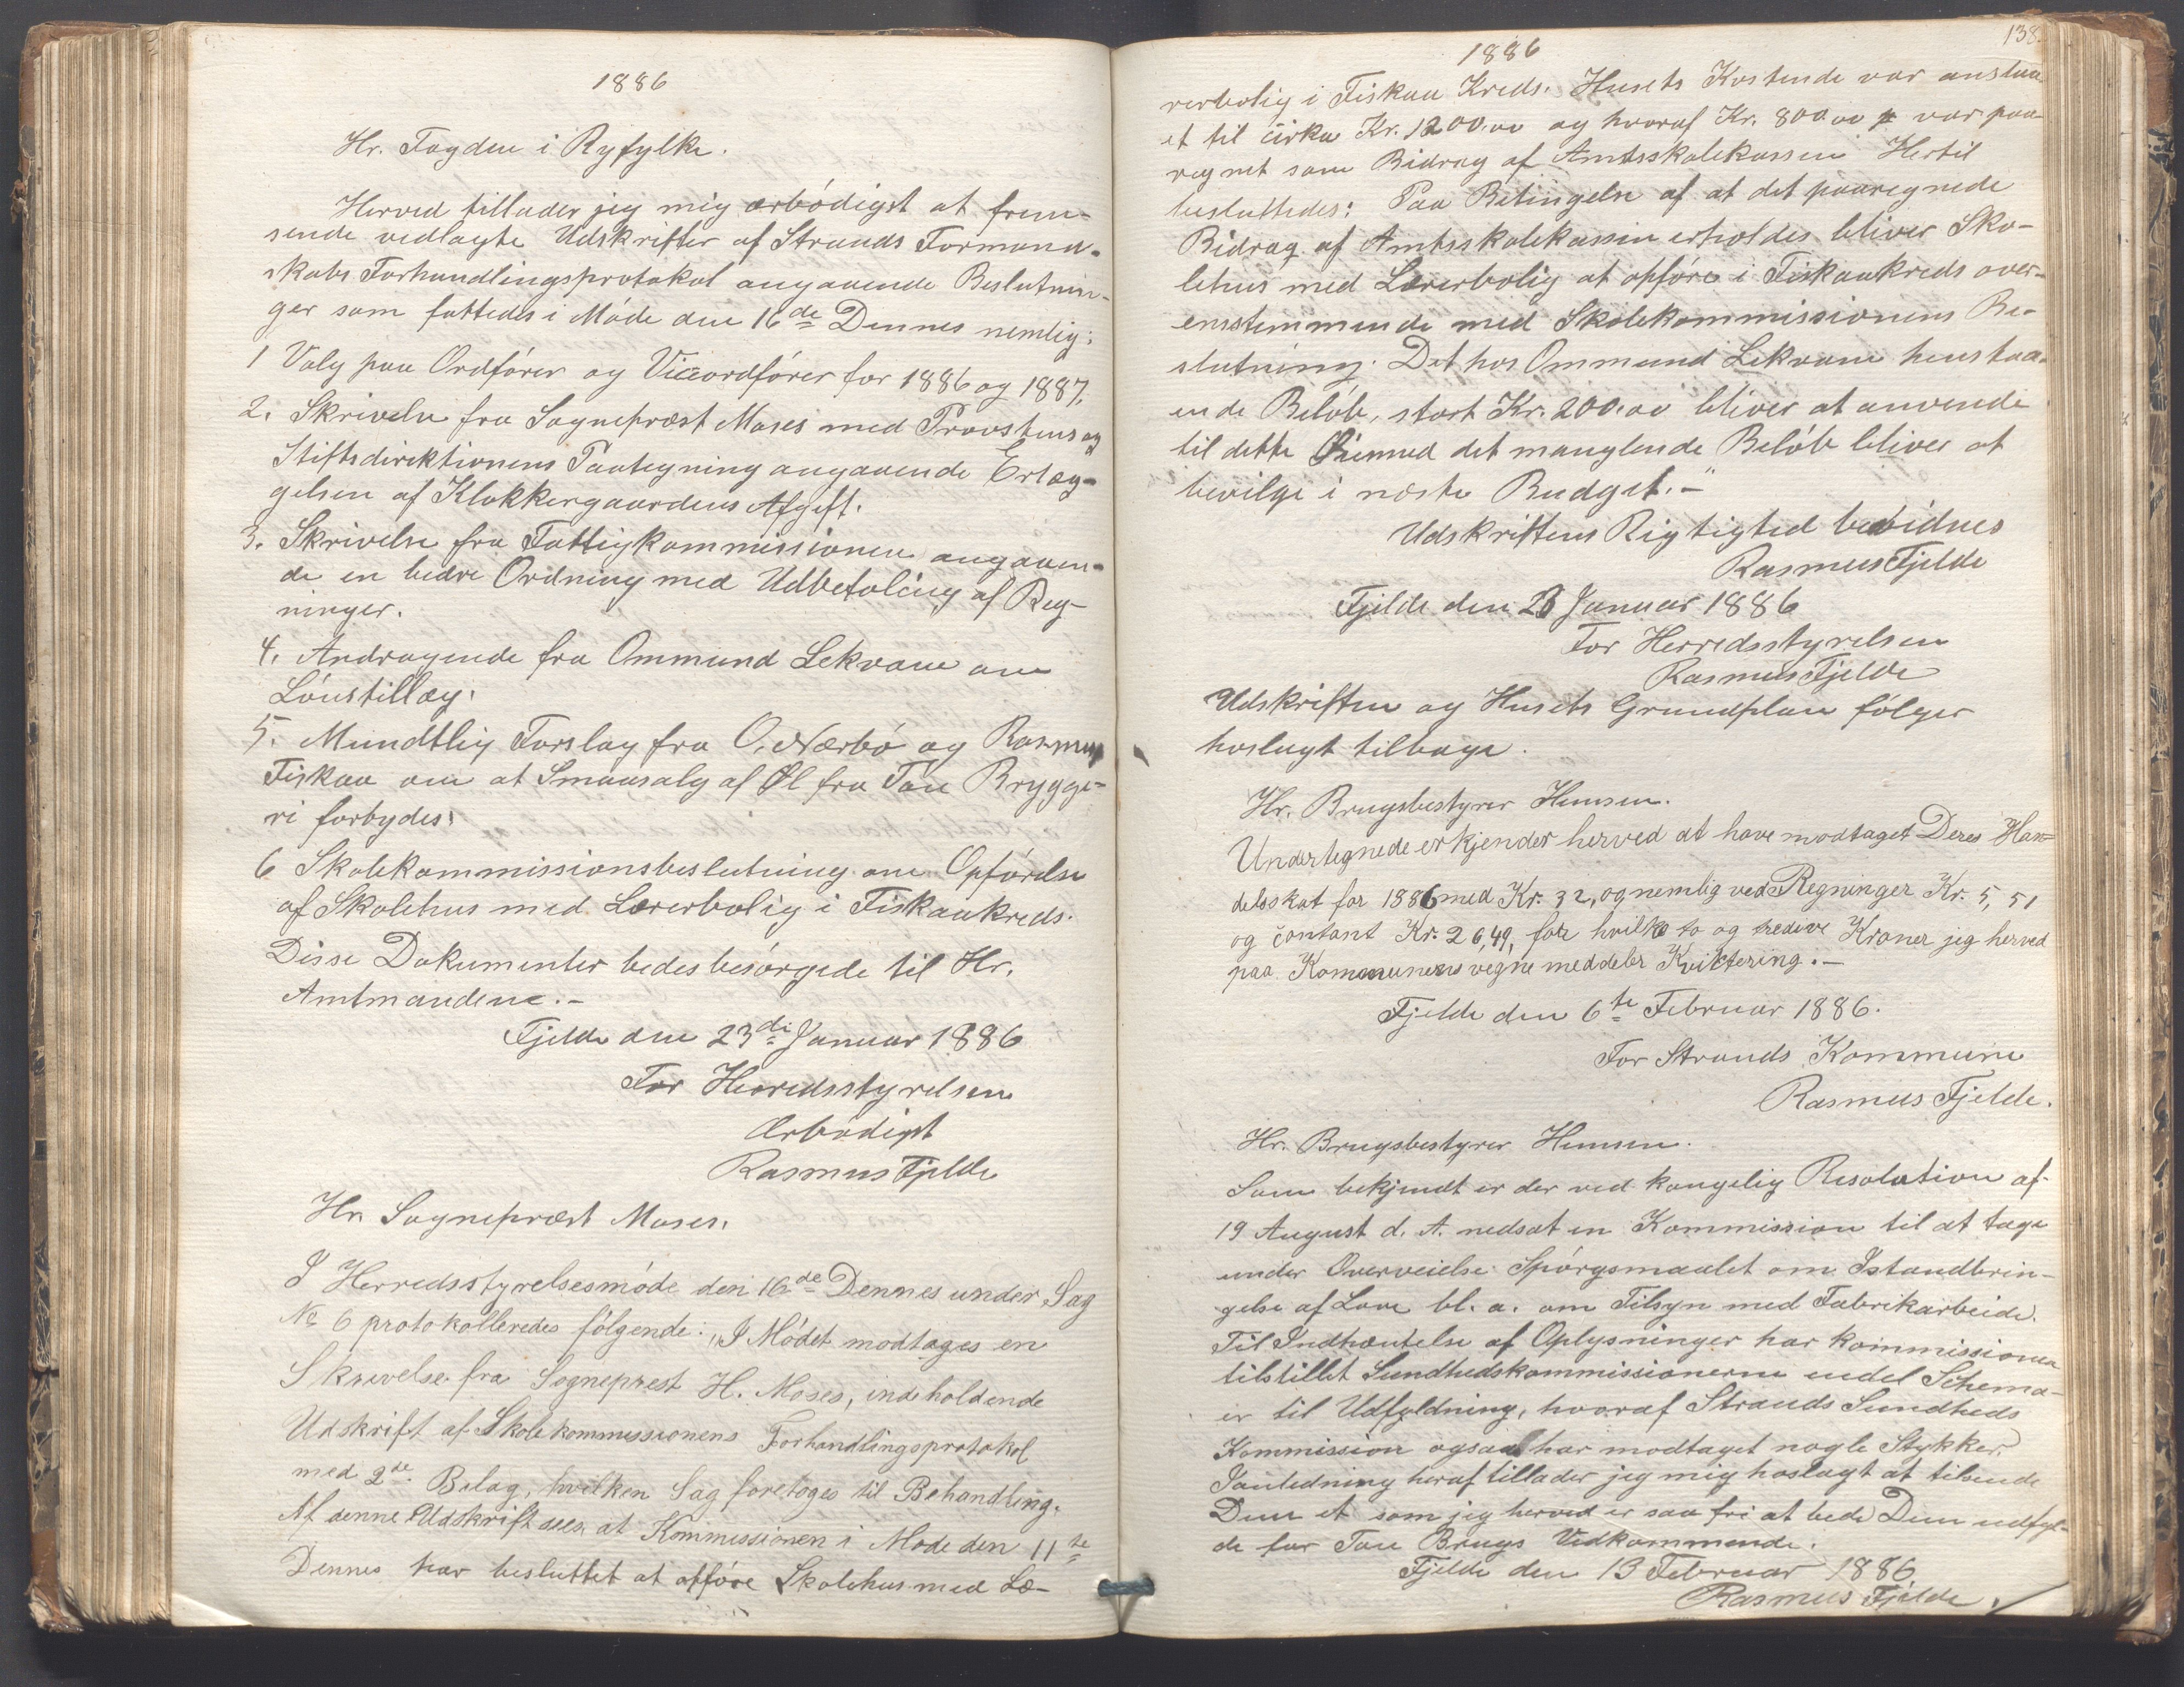 1886
Hr. Fogden i Ryfylke.
Herved tillader jeg mig ærbødigst at frem-
sende vedlagte Udskrifter af Strands Formand-
skabs Forhandlingsprotokol angaaende Beslutnin-
ger som fattedes i Møde den 16de Dennes nemlig:
1 Valg paa Ordfører og Viceordfører for 1886 og 1887.
2. Skrivelse fra Sognepræst Moses med Provstens og
Stiftsdirektionens Paategning angaaende Erlæg-
gelsen af Klokkergaardens Afgift.
3. Skrivelse fra Fattigkommissionen angaaen-
de en bedre Ordning med Udbetaling af Reg-
ninger.
4. Andragende fra Ommund Lekvam om
Lønstillæg.
5. Mundtlig Forslag fra O. Nærbø og Rasmus
Fiskaa om at Smaasalg af Øl fra Tau Brygge-
ri forbydes.
6 Skolekommissionsbeslutning om Opførelse
af Skolehus med Lærerbolig i Fiskaakreds.
Disse Dokumenter bedes besørgede til Hr.
Amtmanden.-
Fjelde den 23de Januar 1886
For Herredsstyrelsen
Ærbødigst
Rasmus Fjelde
Hr. Sognepræst Moses.
I Herredsstyrelsesmøde den 16de Dennes under Sag
No 6 protokolleredes følgende: "I Mødet modtages en
Skrivelse fra Sogneprest H. Moses, indeholdende
Udskrift af Skolekommissionens Forhandlingsprotokol
med 2de Bilag, hvilken Sag foretoges til Behandling.
Af denne Udskrift sees at Kommissionen i Møde den 11te
Dennes har besluttet at opføre Skolehus med Læ-
138.
1886
rerbolig i Fiskaa Kreds. Husets Kostende var anslaa-
et til cirka Kr. 1200.00 og hvoraf Kr. 800.00 var paa-
regnet som Bidrag af Amtsskolekassen Hertil
besluttedes: Paa Betingelse af at det paaregnede
Bidrag af Amtsskolekassen erholdes bliver Sko-
lehus med Lærerbolig at opføre i Fiskaakreds over-
ensstemmende med Skolekommissionens Be-
slutning. Det hos Ommund Lekvam henstaa-
ende Beløb, stort Kr. 200.00 bliver at anvende
til dette Øiemed det manglende Beløb bliver at
bevilge i næste Budget.-"
Udskriftens Rigtighed bevidnes
Rasmus Fjelde
Fjelde den 23 Januar 1886
For Herredsstyrelsen
Rasmus Fjelde
Udskriften og Husets Grundplan følger
hoslagt tilbage.
Hr. Brugsbestyrer Hemsen.
Undertegnede erkjender herved at have modtaget Deres Han-
delsskat for 1886 med Kr. 32, og nemlig ved Regninger Kr. 5,51
og contant Kr. 26,49, for hvilke to og tredive Kroner jeg herved
paa Kommunens vegne meddeler Kvittering.-
Fjelde den 6te Februar 1886.
For Strands Kommune
Rasmus Fjelde.
Hr. Brugsbestyrer Hemsen.
Som bekjendt er der ved kongelig Resolution af
19 August d. A. nedsat en Kommission til at tage
under Overveielse Spørgsmaalet om Istandbrin-
gelse af Love bl. a. om Tilsyn med Fabrikarbeide.
Til Indhæntelse af Oplysninger har kommissionen
tilstillet Sundhedskommissionerne endel Schema-
er til Udfyldning, hvoraf Strands Sundheds
Kommission ogsaa har modtaget nogle Stykker.
Ianledning heraf tillader jeg mig hoslagt at tilsende
Dem et som jeg herved er saa fri at bede Dem udfyl-
de for Tau Brugs Vedkommende.
Fjelde den 13 Februar 1886
Rasmus Fjelde.